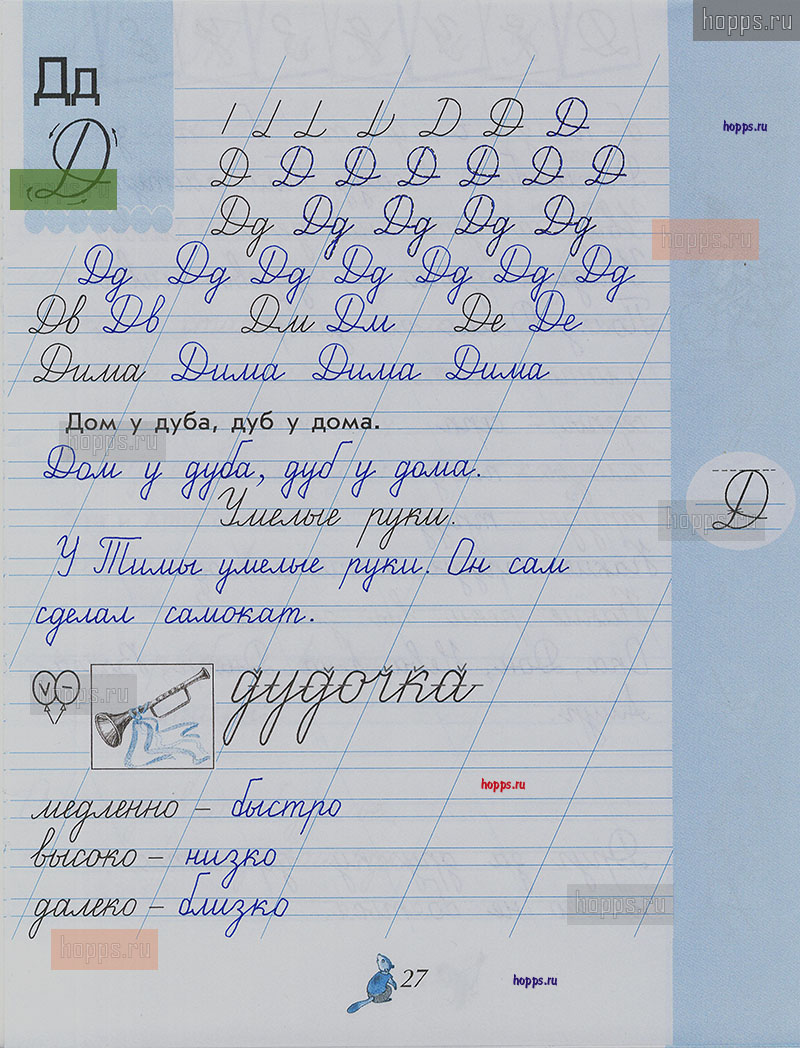 hopps.ru
Дд
Д
hopps.ru
Д Д Д
hopps.ru
Д Д Д Д Д Д Д
Дд Дд Дд Дд Дд
hopps.ru
Дд Дд Дд Дд Дд Дд Дд
Дв Дв Дм Дм Де Де
Дима Дима Дима Дима
Дом у дуба, дуб у дома.
hopps.ru
Дом у дуба, дуб у дома.
Умелые руки.
Д
hopps.ru
У Тимы умелые руки. Он сам
сделал самокат.
дудочка
hopps.ru
hopps.ru
медленно – быстро
высоко – низко
далеко – близко
hopps.ru
hopps.ru
27
hopps.ru